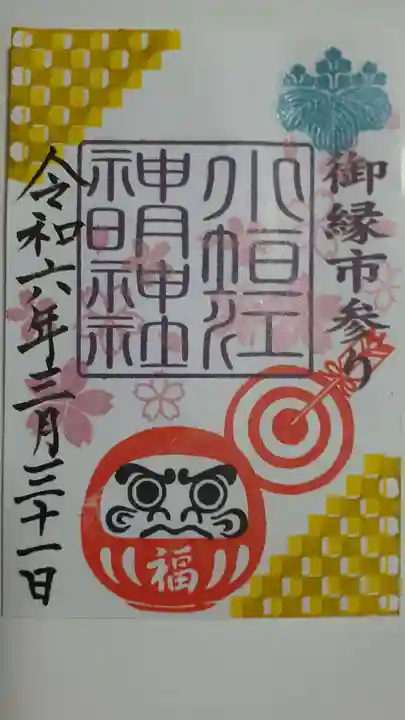 御縁市参り
小垣江
神明神社
令和六年三月三十一日
福